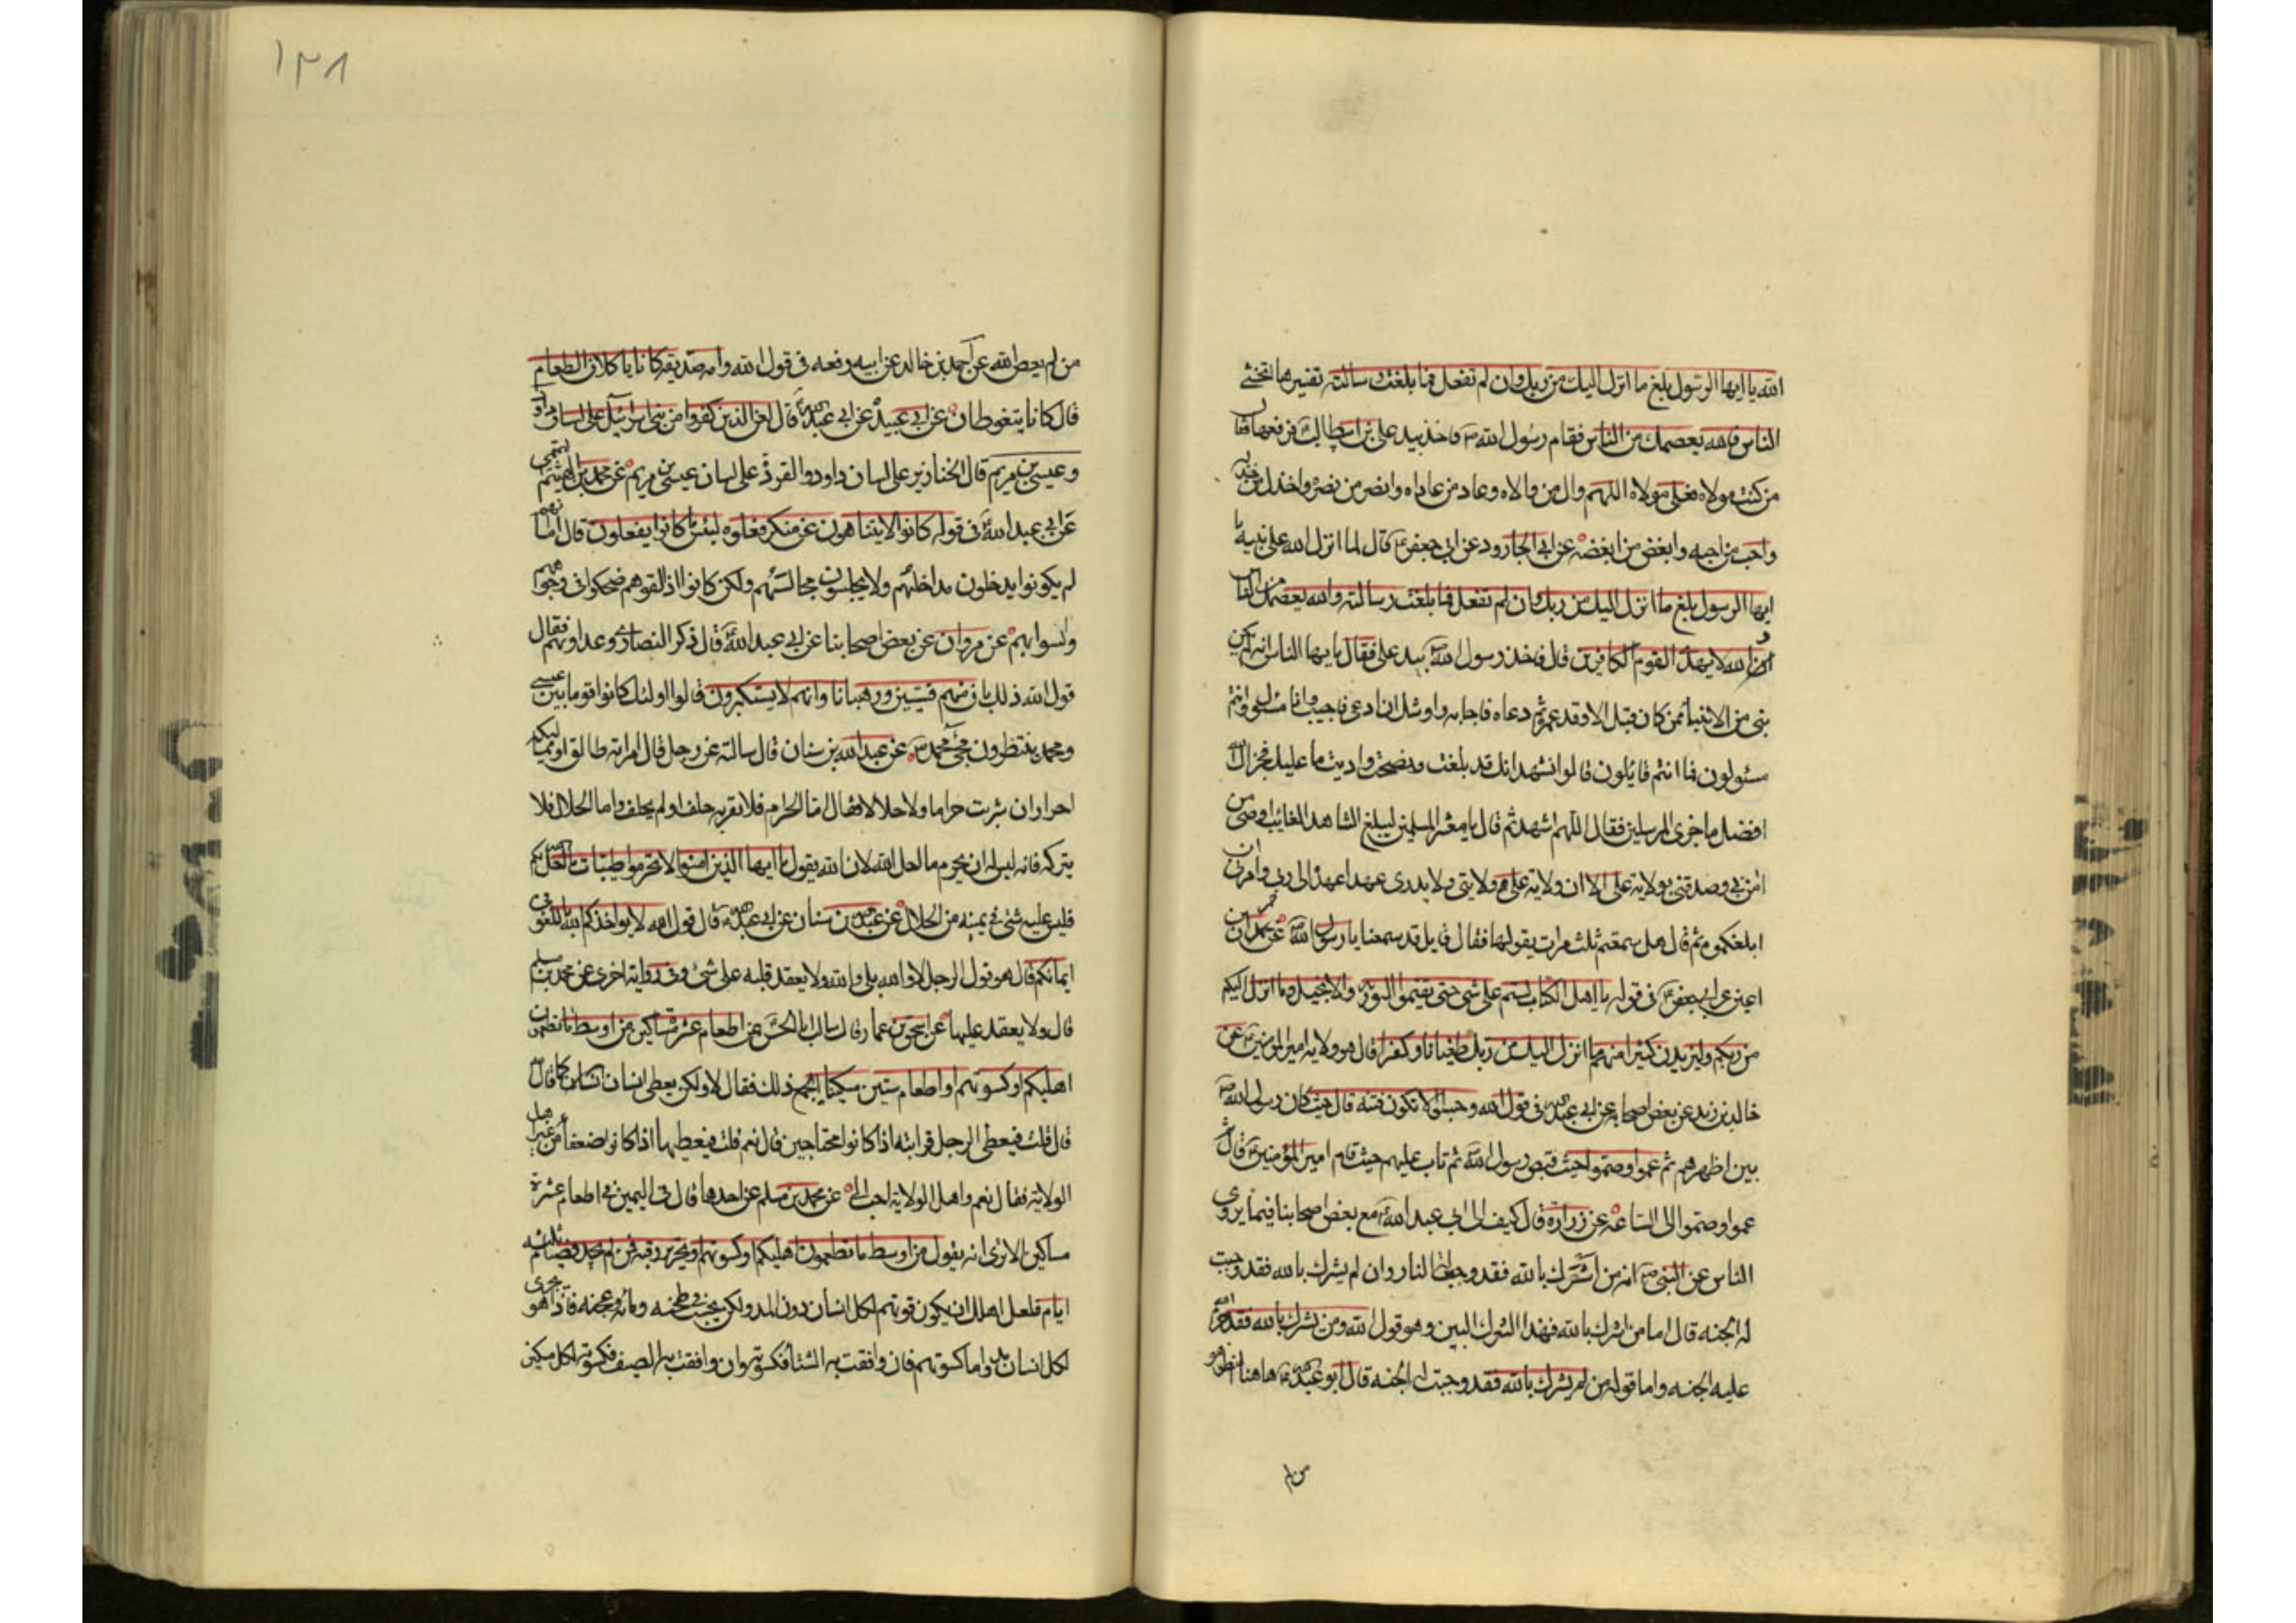 الله يا ايها الرسول بلغ ما انزل اليك من ربك وان لم تفعل فما بلغت رسالته تفسيرها اتخشى
الناس فالله يعصمك من الناس فقام رسول الله ص فاخذ بيد علي بن ابيطالب فرفعها فقال
من كنت مولاه فعلي مولاه اللهم وال من والاه وعاد من عاداه وانصر من نصره واخذل من خذله
واحب من احبه وابغض من ابغضه عن ابي الجارود عن ابي جعفر ع قال لما انزل الله على نبيه يا
ايها الرسول بلغ ما انزل اليك من ربك وان لم تفعل فما بلغت رسالته والله يعصمك من الناس
ان الله لا يهدي القوم الكافرين قال فاخذ رسول الله ص بيد علي فقال يا ايها الناس انه لم يكن
نبي من الانبياء ممن كان قبل الا وقد عمر ثم دعاه فاجابه واوشك ان ادعى فاجيب وانا مسئول وانتم
مسئولون فما انتم قائلون قالوا نشهد انك قد بلغت ونصحت واديت ما عليك فجزاك الله
افضل ما جزى المرسلين فقال اللهم اشهد ثم قال يا معشر المسلمين ليبلغ الشاهد الغائب اوصي من
امن بي وصدقني بولاية علي الا ان ولاية علي ولايتي ولا يدري عهدا عهده الى ربي وامرني ان
ابلغكموه ثم قال هل سمعتم ثلث مرات يقولها فقال قايل قد سمعنا يا رسول الله ص عن حمران بن
اعين عن ابي جعفر ع في قوله يا اهل الكتاب لستم على شي حتى تقيموا التورية والانجيل وما انزل اليكم
من ربكم وليزيدن كثيرا منهم ما انزل اليك من ربك طغيانا وكفرا قال هو ولاية امير المؤمنين ع عن
خالد بن يزيد عن بعض اصحابه عن ابي عبدالله في قول الله وحسبوا الا تكون فتنة قال حيث كان رسول الله ص
بين اظهرهم ثم عموا وصموا حيث قبض رسول الله ص ثم تاب عليهم حيث قام امير المؤمنين ع قال ثم
عموا وصموا الى الساعة عن زرارة قال كتبت الى ابي عبد الله ع مع بعض اصحابنا فيما يروي
الناس عن النبي ص انه من اشرك بالله فقد وجبت له النار وان لم يشرك بالله فقد وجبت
له الجنه قال اما من اشرك بالله فهذا الشرك البين وهو قول الله ومن يشرك بالله فقد حرم الله
عليه الجنه واما قوله من لم يشرك بالله فقد وجبت له الجنه قال ابو عبدالله ع هاهنا انظر هو
من لم
١٣٨
من لم يعص الله عن احمد بن خالد عن ابيه رفعه في قول الله وامه صديقه كانا ياكلان الطعام
قال كانا يتغوطان عن ابي عبيدة عن ابي عبدالله ع قال لعن الذين كفروا من بني اسرائيل على لسان داود
وعيسى بن مريم قال الخنازير على لسان داود والقردة على لسان عيسى بن مريم عن محمد بن الهيثم التميمي
عن ابي عبد الله ع في قوله كانوا لا يتناهون عن منكر فعلوه لبئس ما كانوا يفعلون قال اما انهم
لم يكونوا يدخلون مداخلهم ولا يجلسون مجالسهم ولكن كانوا اذ لقوهم ضحكوا في وجوههم
وانسوا بهم عن مروان عن بعض اصحابنا عن ابي عبد الله ع قال ذكر النصارى وعداوتهم فقال
قول الله ذلك بان منهم قسيسين ورهبانا وانهم لا يستكبرون قالوا اولئك كانوا قوما بين عيسى
ومحمد ينتظرون مجئ محمد ص عن عبد الله بن سنان قال سالته عن رجل قال امراته طالق او مماليكه
احرار ان شربت حراما ولا حلالا فقال اما الحرام فلا يقربه حلف او لم يحلف واما الحلال فلا
يتركه فانه ليس له ان يحرم ما احل الله لان الله يقول يا ايها الذين امنوا لا تحرموا طيبات ما احل الله لكم
فليس عليه شئ في يمينه من الحلال عن عبدالله بن سنان عن ابي عبدالله ع قال قول الله لا يواخذكم الله باللغو في
ايمانكم قال هو قول الرجل لا والله بلى والله ولا يعقد قلبه على شئ وفي رواية اخرى عن محمد بن مسلم
قال ولا يعقد عليها عن اسحق بن عمار قال سالت ابا الحسن ع عن اطعام عشرة مساكين من اوسط ما تطعمون
اهليكم او كسوتهم او اطعام ستين مسكينا ايجمع ذلك فقال لا ولكن يعطى انسان انسان كما قال الله
قال قلت فيعطي الرجل قرابته اذا كانوا محتاجين قال نعم قلت فيعطيها اذا كانوا ضعفا من غير اهل
الولاية فقال نعم واهل الولاية احب الي عن محمد بن مسلم عن احدهما قال في اليمين في اطعام عشرة
مساكين الا ترى انه يقول من اوسط ما تطعمون اهليكم او كسوتهم او تحرير رقبة فمن لم يجد فصيام ثلثة
ايام فلعل اهلك ان يكون قوتهم لكل انسان دون المد ولكن يحسب في طحنه ومائه وعجنه فاذا هو يجزي
لكل انسان مد واما كسوتهم فان وافقت به الشتاء فكسوته وان وافقت به الصيف فكسوته لكل مسكين